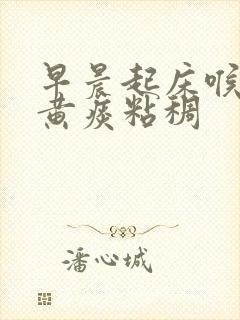 早晨起床喉
黄痰粘稠
潘心城